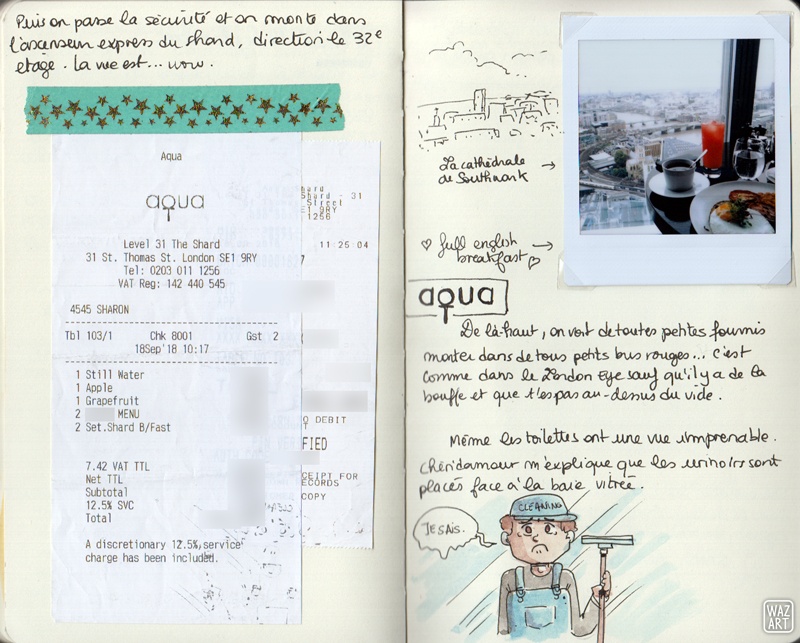 Puis on passe la sécurité et on monte dans
l'ascenseur express du Shard, direction le 32e
étage. La vue est... wow.
Aqua
aqua
Level 31 The Shard
31 St. Thomas St. London SE1 9RY
Tel: 0203 011 1256
VAT Reg: 142 440 545
4545 SHARON
Tbl 103/1 Chk 8001 Gst 2
18Sep'18 10:17
1 Still Water
1 Apple
1 Grapefruit
2 MENU
2 Set.Shard B/Fast
7.42 VAT TTL
Net TTL
Subtotal
12.5% SVC
Total
A discretionary 12.5% service
charge has been included.
hard
Shard - 31
Street
E1 9RY
1256
11 25 04
7
O DEBIT
T
FIED
CEIPT FOR
ECORDS
COPY
La cathédrale →
de Southwark
♡ full english →
breakfast ♡
aqua
De là-haut, on voit de toutes petites fourmis
monter dans de tous petits bus rouges... c'est
comme dans le London Eye sauf qu'il y a de la
bouffe et que t'es pas au-dessus du vide.
Même les toilettes ont une vue imprenable.
Chéridamour m'explique que les urinoirs sont
placés face à la baie vitrée.
CLEANING
JE SAIS.
WAZ
ART